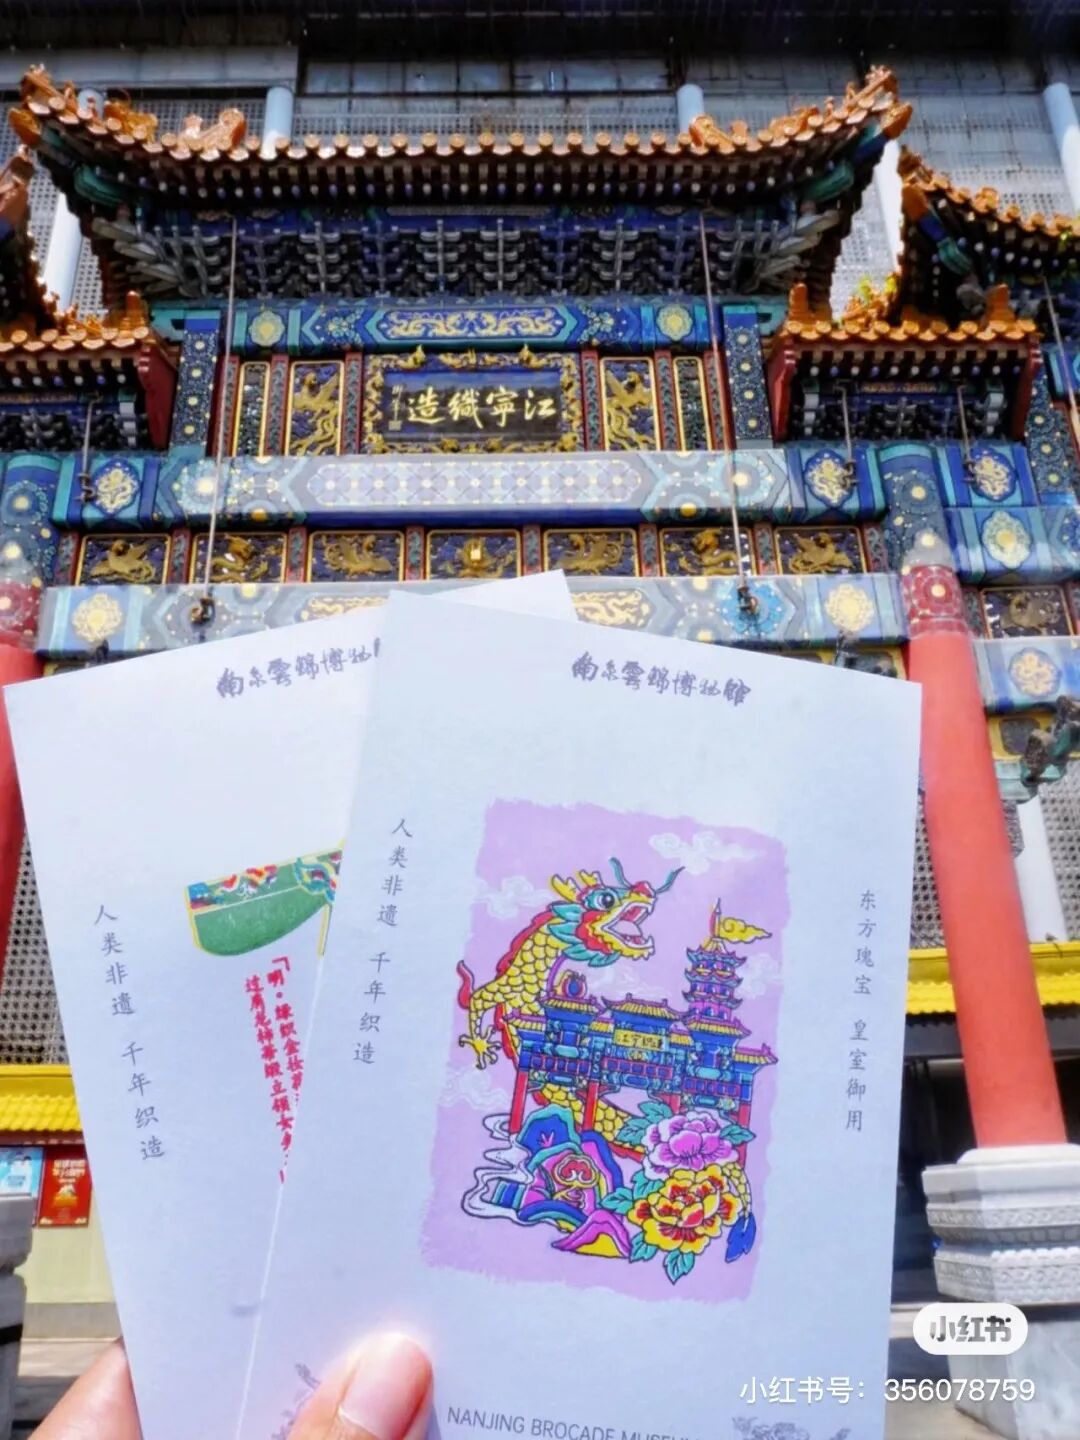 江寧織造
南京雲錦博物
南京雲錦博物館
人类非遗 千年织造
人类非遗 千年织造
东方瑰宝 皇室御用
NANJING BROCADE MUSEUM
小红书
小红书号：356078759